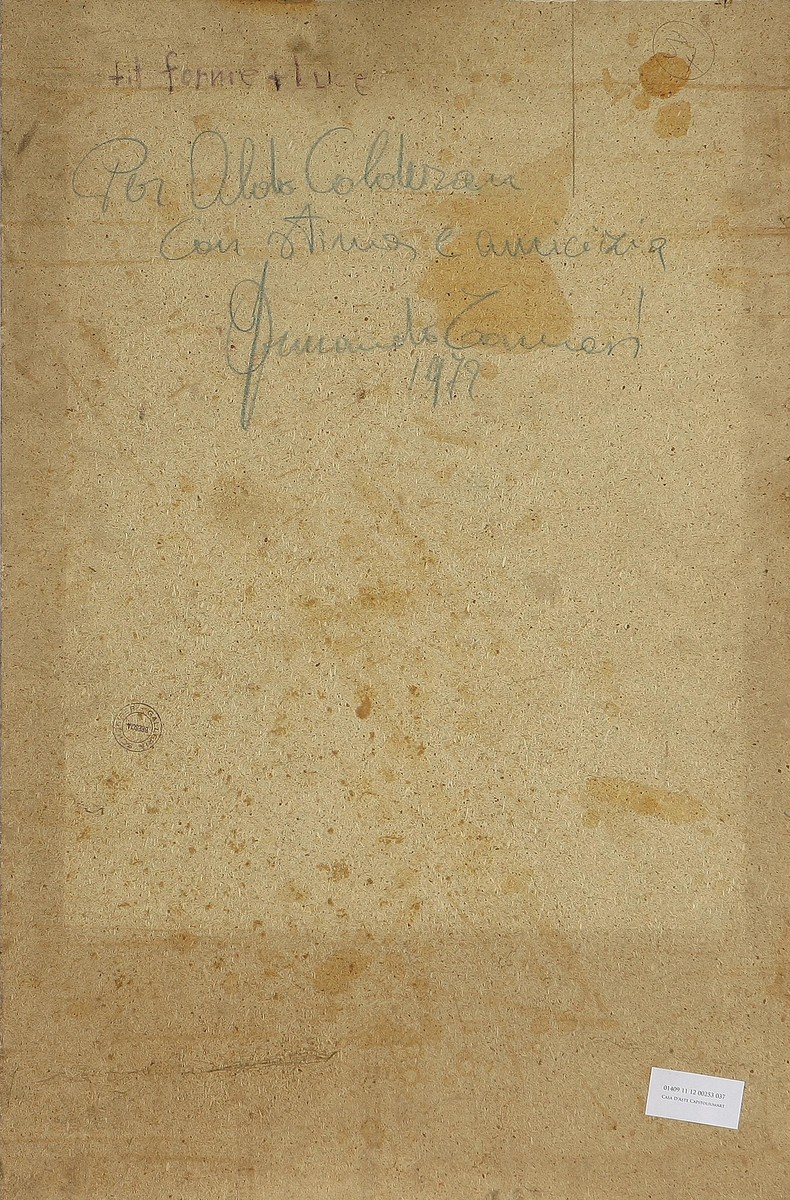 tit forme + Luce
Per Aldo Calderan
Con stima e amicizia
Armando
1972
01409 11 12 00253 037
Casa d'Arte Capitoliumart